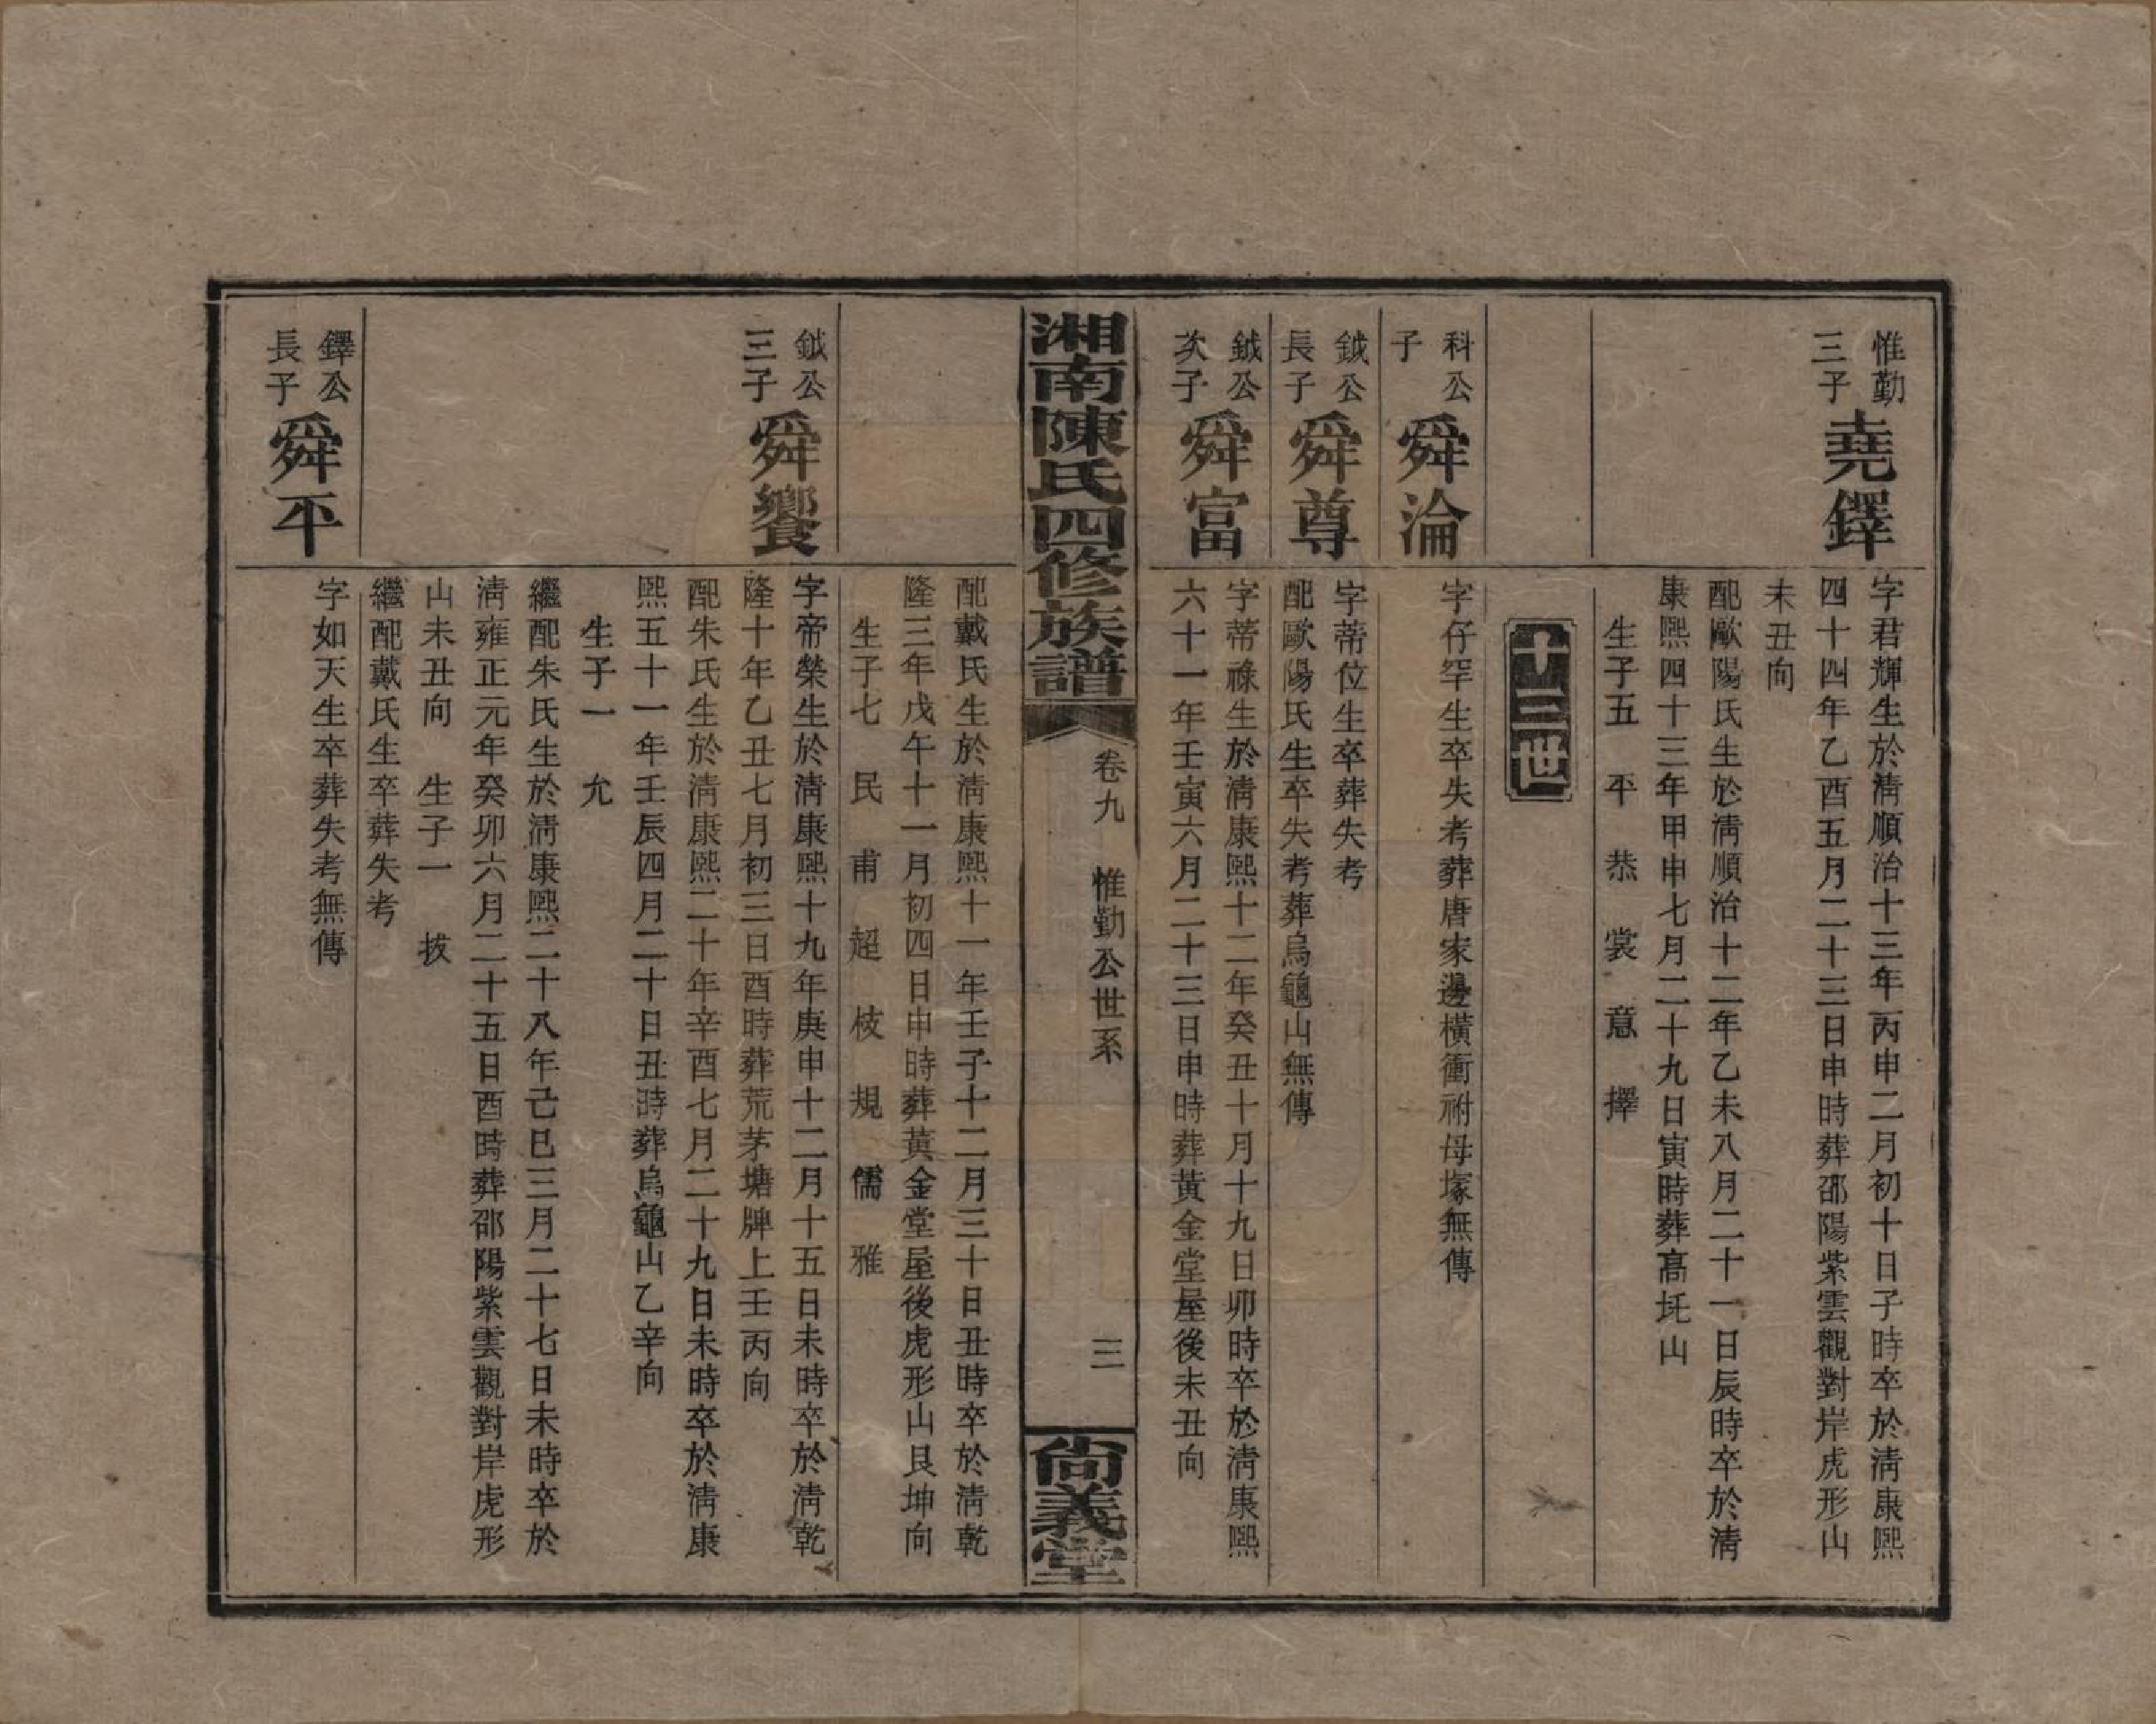 惟勤
三子
堯鐸
字君輝生於清順治十三年丙申二月初十日子時卒於清康熙
四十四年乙酉五月二十三日申時葬邵陽紫雲觀對岸虎形山
未丑向
配歐陽氏生於清順治十二年乙未八月二十一日辰時卒於清
康熙四十三年甲申七月二十九日寅時葬高圫山
生子五 平 恭 裳 意 擇
十三世
科公
子
舜淪
字仔罕生卒失考葬唐家邊橫衝祔母塚無傳
鉞公
長子
舜尊
字蒂位生卒葬失考
配歐陽氏生卒失考葬烏龜山無傳
鉞公
次子
舜富
字蒂祿生於清康熙十二年癸丑十月十九日卯時卒於清康熙
六十一年壬寅六月二十三日申時葬黃金堂屋後未丑向
湘南陳氏四修族譜
卷九 惟勤公世系
三
尚義堂
配戴氏生於清康熙十一年壬子十二月三十日丑時卒於清乾
隆三年戊午十一月初四日申時葬黃金堂屋後虎形山艮坤向
生子七 民 甫 超 枝 規 儒 雅
鉞公
三子
舜饗
字帝榮生於清康熙十九年庚申十二月十五日未時卒於清乾
隆十年乙丑七月初三日酉時葬荒茅塘牌上壬丙向
配朱氏生於清康熙二十年辛酉七月二十九日未時卒於清康
熙五十一年壬辰四月二十日丑時葬烏龜山乙辛向
生子一 允
繼配朱氏生於清康熙二十八年己巳三月二十七日未時卒於
清雍正元年癸卯六月二十五日酉時葬邵陽紫雲觀對岸虎形
山未丑向 生子一 拔
繼配戴氏生卒葬失考
鐸公
長子
舜平
字如天生卒葬失考無傳